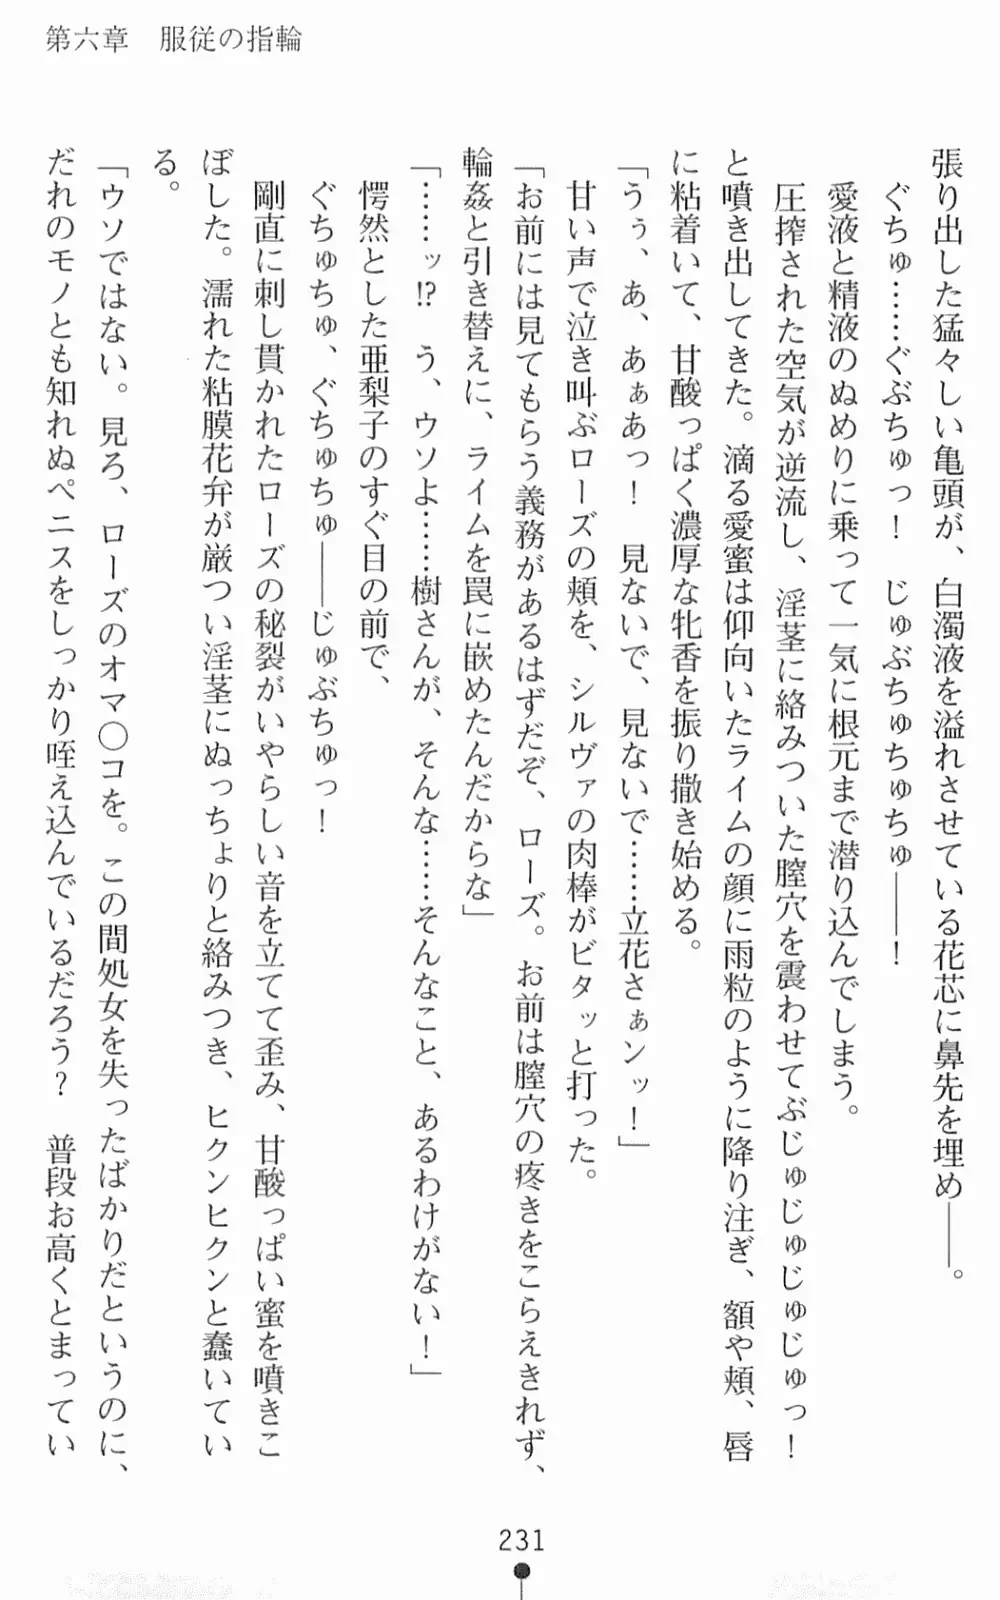 第六章　服従の指輪
張り出した猛々しい亀頭が、白濁液を溢れさせている花芯に鼻先を埋め――。
ぐちゅ……ぐぶちゅっ！　じゅぶちゅちゅちゅ――！
愛液と精液のぬめりに乗って一気に根元まで潜り込んでしまう。
圧搾された空気が逆流し、淫茎に絡みついた膣穴を震わせてぶじゅじゅじゅじゅっ！
と噴き出してきた。滴る愛蜜は仰向いたライムの顔に雨粒のように降り注ぎ、額や頬、唇
に粘着いて、甘酸っぱく濃厚な牝香を振り撒き始める。
「うぅ、あ、あぁあっ！　見ないで、見ないで……立花さぁンッ！」
甘い声で泣き叫ぶローズの頬を、シルヴァの肉棒がビタッと打った。
「お前には見てもらう義務があるはずだぞ、ローズ。お前は膣穴の疼きをこらえきれず、
輪姦と引き替えに、ライムを罠に嵌めたんだからな」
「……ッ!?　う、ウソよ……樹さんが、そんな……そんなこと、あるわけがない！」
愕然とした亜梨子のすぐ目の前で、
ぐちゅちゅ、ぐちゅちゅ――じゅぶちゅっ！
剛直に刺し貫かれたローズの秘裂がいやらしい音を立てて歪み、甘酸っぱい蜜を噴きこ
ぼした。濡れた粘膜花弁が厳つい淫茎にぬっちょりと絡みつき、ヒクンヒクンと蠢いてい
る。
「ウソではない。見ろ、ローズのオマ〇コを。この間処女を失ったばかりだというのに、
だれのモノとも知れぬペニスをしっかり咥え込んでいるだろう？　普段お高くとまってい
231